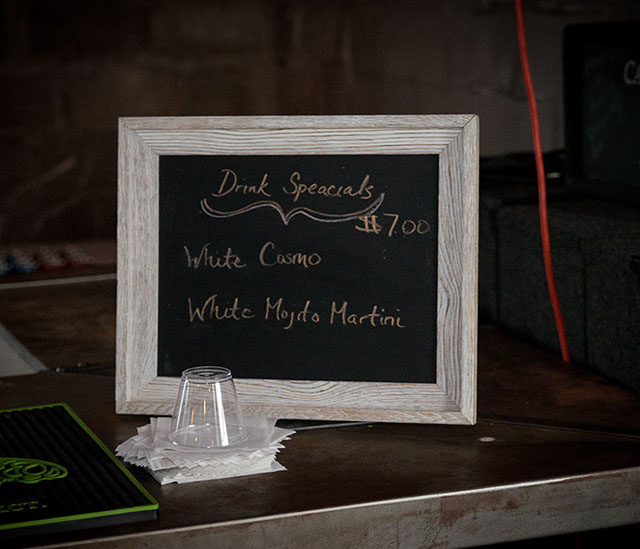 Drink Speacials
$7.00
White Cosmo
White Mojito Martini